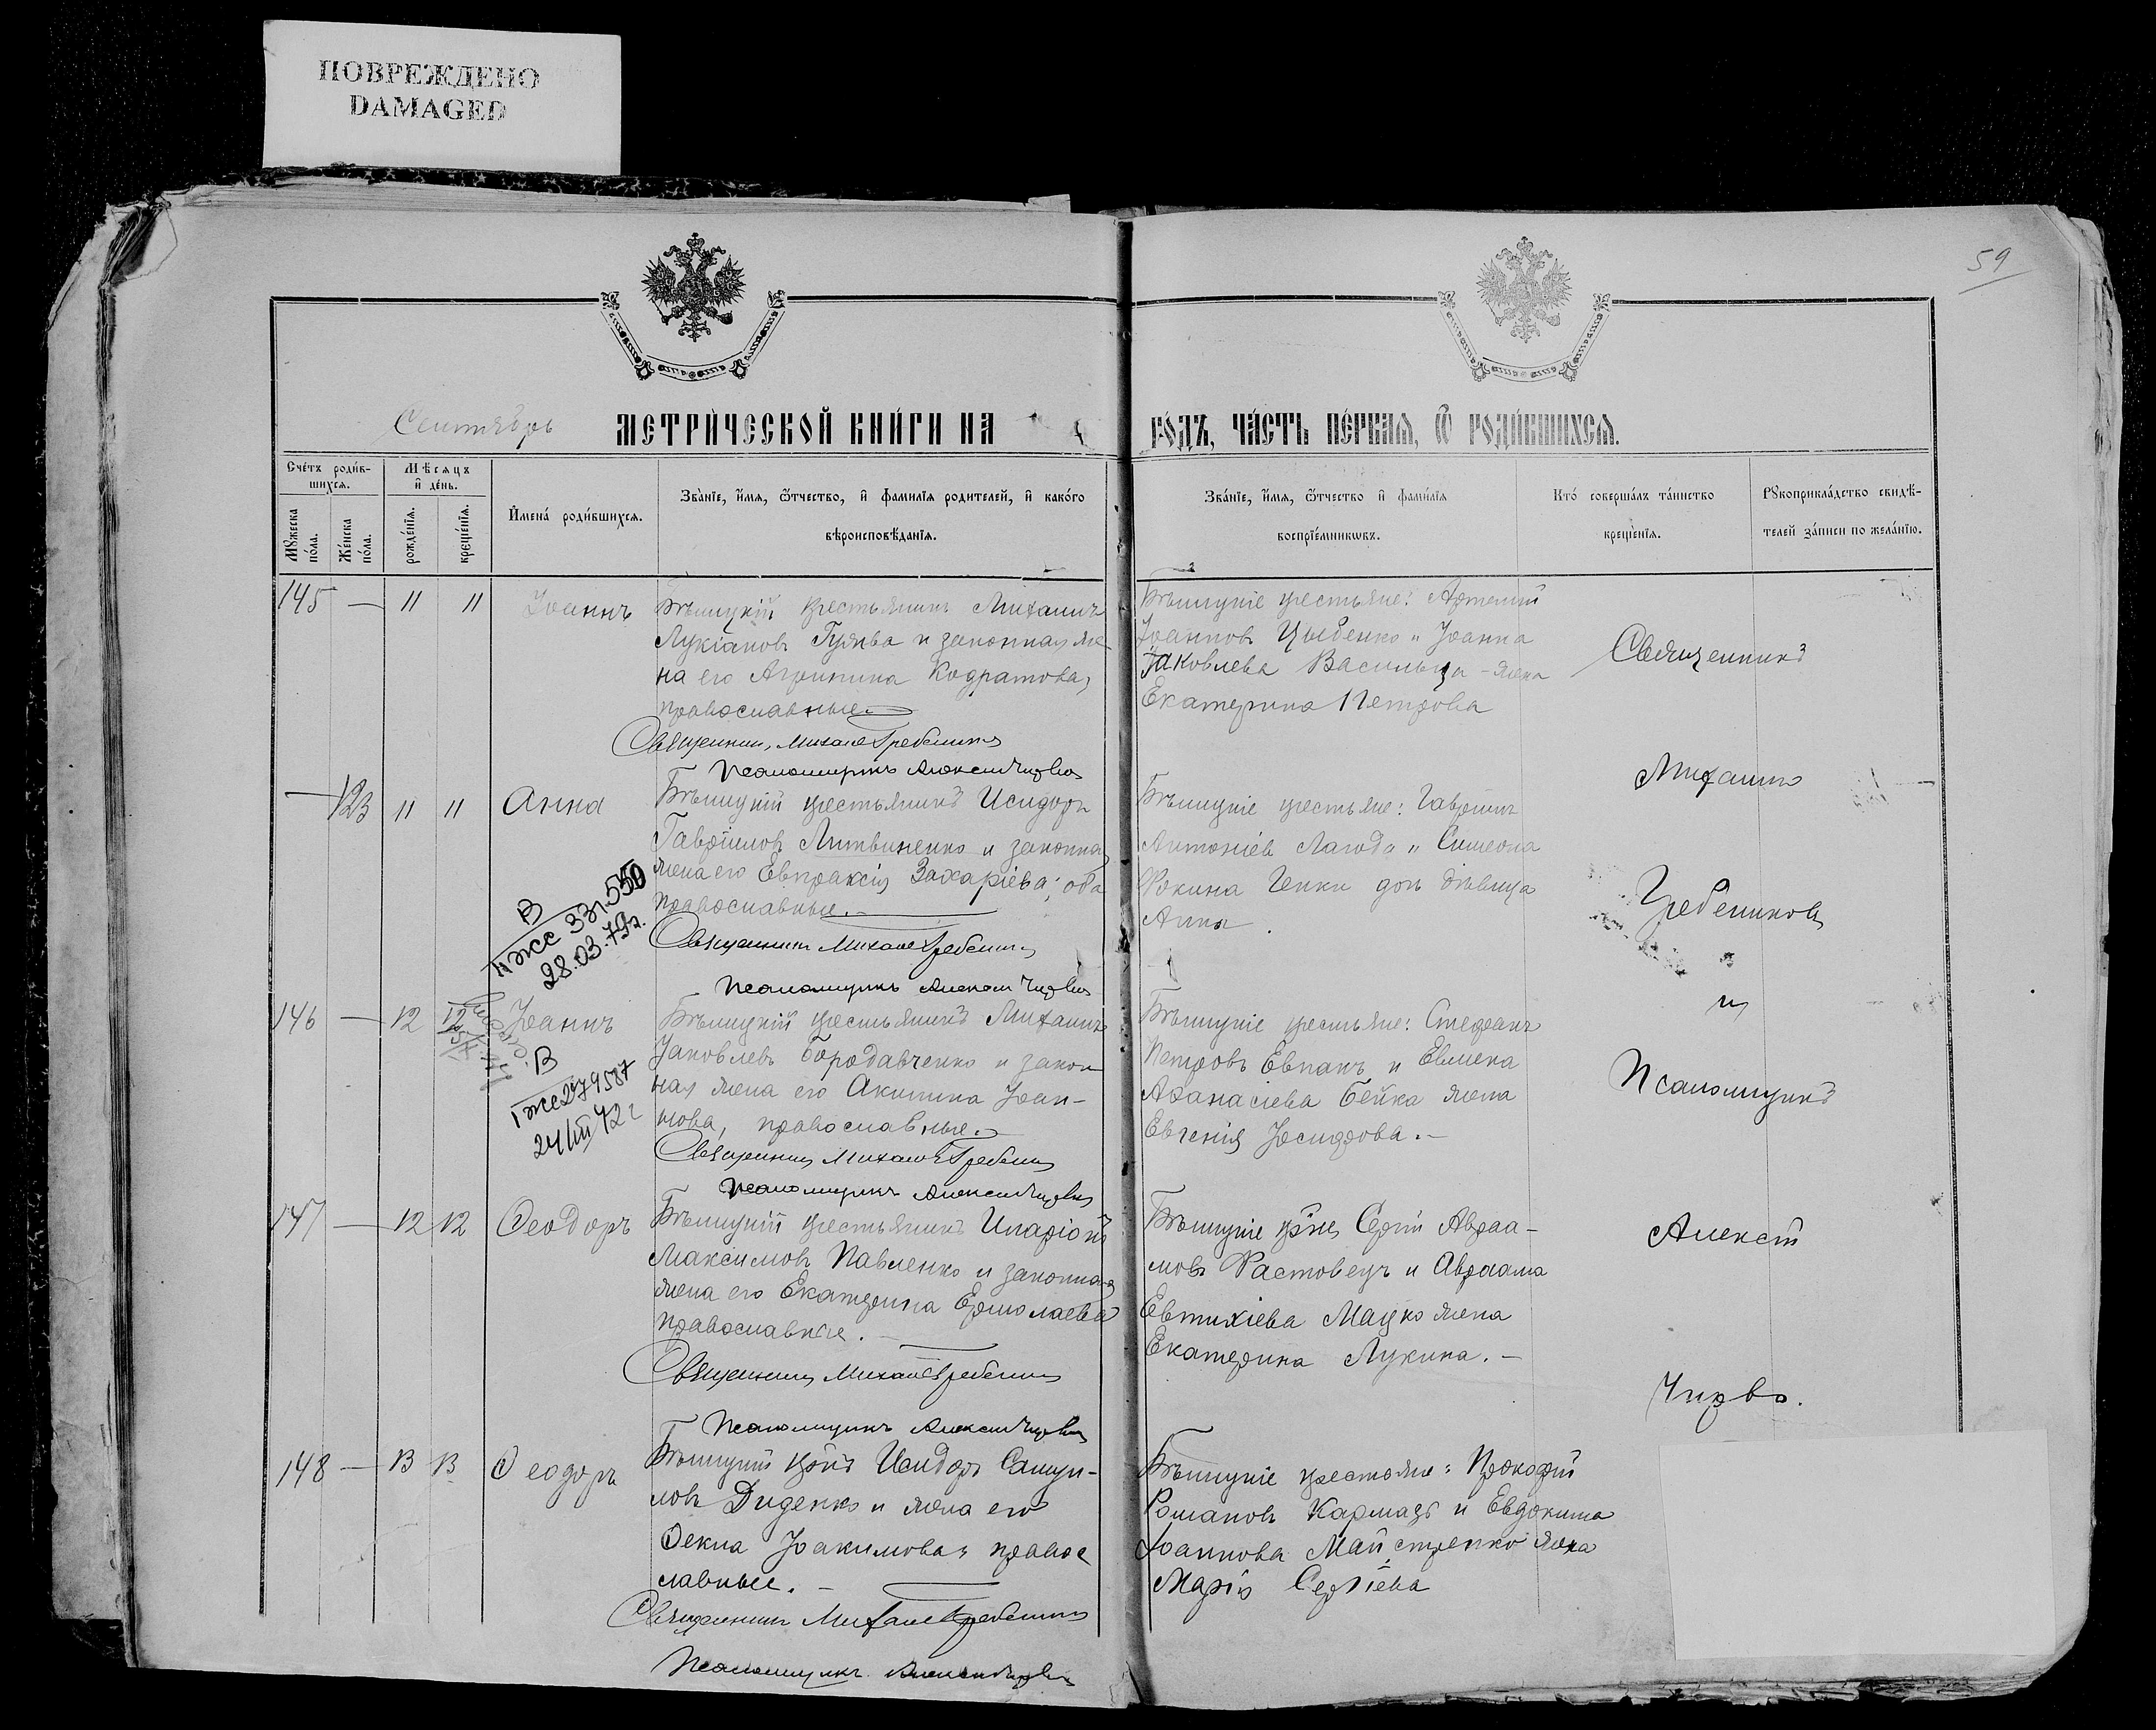 ПОВРЕЖДЕНО
DAMAGED
59
Сентябрь
МЕТРИ́ЧЕСКОЙ КНИ́ГИ НА
ГО́ДЪ, ЧА́СТЬ ПЕ́РВАЯ, Ѿ РОДИ́ВШИХСЯ.
Сче́тъ роди́в-
шихся.
Мѣ́сяцъ
и де́нь.
Му́жеска
по́ла.
Же́нска
по́ла.
рожде́нія.
креще́нія.
Имена́ роди́вшихся.
Зва́ніе, и́мя, ѻ́тчество, и фами́лія родителей, и како́го
вѣроисповѣ́данія.
Зва́ніе, и́мя, ѻ́тчество и фами́лія
воспріе́мниковъ.
Кто́ соверша́лъ та́инство
креще́нія.
Рукоприкла́дство свидѣ́-
телей за́писи по жела́нію.
145 — 11 11 Іоаннъ
крестьянинъ Михаилъ
Лукіановъ и законная же-
на его Агрипина Кодратова,
православные.
Священникъ Михаилъ Гребенниковъ
Псаломщикъ Алексій Чирва
крестьяне: Артемій
Іоанновъ Цыбенко и Іоанна
Іаковлева жена
Екатерина Петрова
Священникъ
Михаилъ
Гребениковъ
и
Псаломщикъ
Алексій
Чирва.
— 123 11 11 Анна
крестьянинъ Исидоръ
Гавріиловъ Литвиненко и законная
жена его Евпраксія Захаріева; оба
православные.
Священникъ Михаилъ Гребенниковъ
Псаломщикъ Алексій Чирва
крестьяне: Гавріилъ
Антоніевъ Лагода и Симеона
Фокина дѣвица
Анна
В
II ЖС 331.550
28.03.79г.
146 — 12 12 Іоаннъ
крестьянинъ Михаилъ
Іаковлевъ Бородавченко и закон-
ная жена его Акилина Іоан-
нова, православные.
Священникъ Михаилъ Гребенниковъ
Псаломщикъ Алексій Чирва
крестьяне: Стефанъ
Петровъ Евпакъ и
Афанасіева Бейка жена
Евгенія
В
I же 279587
24/III 42г
147 — 12 12 Ѳеодоръ
крестьянинъ Иларіонъ
Максимовъ Павленко и законная
жена его Екатерина Ермолаева
православные.
Священникъ Михаилъ Гребенниковъ
Псаломщикъ Алексій Чирва
кр-не Сергій Авраа-
мовъ Растовецъ и Авраама
Евтихіева Мацко жена
Екатерина Лукина.
148 — 13 13 Ѳеодоръ
кр-нъ Исидоръ Самуи-
ловъ Диденко и жена его
Ѳекла Іоакимова, правос-
лавные.
Священникъ Михаилъ Гребенниковъ
Псаломщикъ Алексій Чирва
крестьяне: Прокофій
Романовъ Кармазъ и Евдокима
Іоаннова Майстренко жена
Марія Сергіева